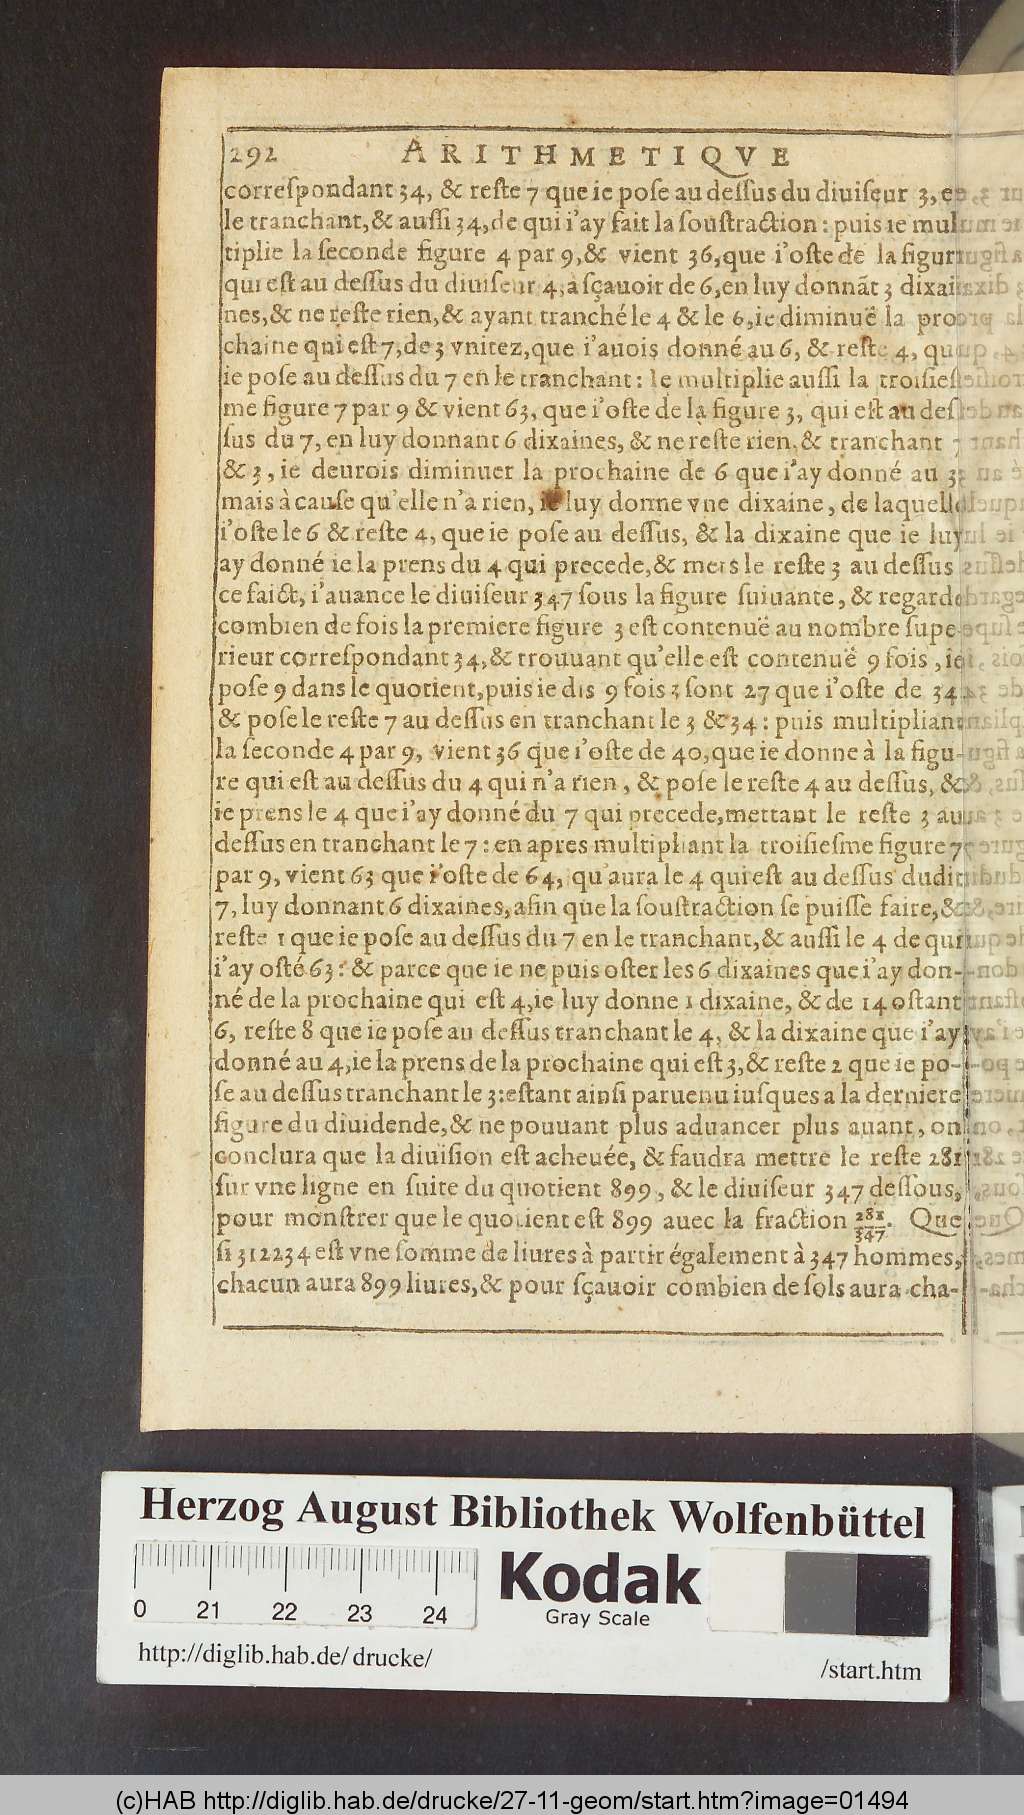 292 ARITHMETIQVE
correſpondant 34, & reſte 7 que ie poſe au deſſus du diuiſeur 3, en
le tranchant, & auſſi 34, de qui i'ay fait la souſtraction : puis ie mul
tiplie la ſeconde figure 4 par 9, & vient 36, que i'oſte de la figur
qui eſt au deſſus du diuiſeur 4, à ſçauoir de 6, en luy donnãt 3 dixai
nes, & ne reſte rien, & ayant tranché le 4 & le 6, ie diminuë la pro
chaine qui eſt 7, de 3 vnitez, que i'auois donné au 6, & reſte 4, qu
ie poſe au deſſus du 7 en le tranchant : Ie multiplie auſſi la troiſieſ
me figure 7 par 9 & vient 63, que i'oſte de la figure 3, qui eſt au deſ
ſus du 7, en luy donnant 6 dixaines, & ne reſte rien, & tranchant 7
& 3, ie deurois diminuer la prochaine de 6 que i'ay donné au 3
mais à cauſe qu'elle n'a rien, ie luy donne vne dixaine, de laquelle
i'oſte le 6 & reſte 4, que ie poſe au deſſus, & la dixaine que ie luy
ay donné ie la prens du 4 qui precede, & mets le reſte 3 au deſſus
ce faict, i'auance le diuiſeur 347 ſous la figure ſuiuante, & regarde
combien de fois la premiere figure 3 eſt contenuë au nombre ſupe-
rieur correſpondant 34, & trouuant qu'elle eſt contenuë 9 fois, ie
poſe 9 dans le quotient, puis ie dis 9 fois 3 ſont 27 que i'oſte de 34
& poſe le reſte 7 au deſſus en tranchant le 3 & 34 : puis multipliant
la ſeconde 4 par 9, vient 36 que i'oſte de 40, que ie donne à la figu-
re qui eſt au deſſus du 4 qui n'a rien, & poſe le reſte 4 au deſſus, &
ie prens le 4 que i'ay donné du 7 qui precede, mettant le reſte 3 au
deſſus en tranchant le 7 : en apres multipliant la troiſieſme figure 7
par 9, vient 63 que i'oſte de 64, qu'aura le 4 qui eſt au deſſus dudit
7, luy donnant 6 dixaines, afin que la souſtraction ſe puiſſe faire, &
reſte 1 que ie poſe au deſſus du 7 en le tranchant, & auſſi le 4 de qui
i'ay oſté 63 : & parce que ie ne puis oſter les 6 dixaines que i'ay don-
né de la prochaine qui eſt 4, ie luy donne 1 dixaine, & de 14 oſtant
6, reſte 8 que ie poſe au deſſus tranchant le 4, & la dixaine que i'ay
donné au 4, ie la prens de la prochaine qui eſt 3, & reſte 2 que ie po-
ſe au deſſus tranchant le 3 : eſtant ainſi paruenu iuſques a la derniere
figure du diuidende, & ne pouuant plus aduancer plus auant, on
conclura que la diuiſion eſt acheuée, & faudra mettre le reſte 281
ſur vne ligne en ſuite du quotient 899, & le diuiſeur 347 deſſous,
pour monſtrer que le quotient eſt 899 auec la fraction 281/347. Que
ſi 312234 eſt vne ſomme de liures à partir également à 347 hommes,
chacun aura 899 liures, & pour ſçauoir combien de ſols aura cha-
Herzog August Bibliothek Wolfenbüttel
0 21 22 23 24
Kodak
Gray Scale
http://diglib.hab.de/drucke/
/start.htm
(c)HAB http://diglib.hab.de/drucke/27-11-geom/start.htm?image=01494